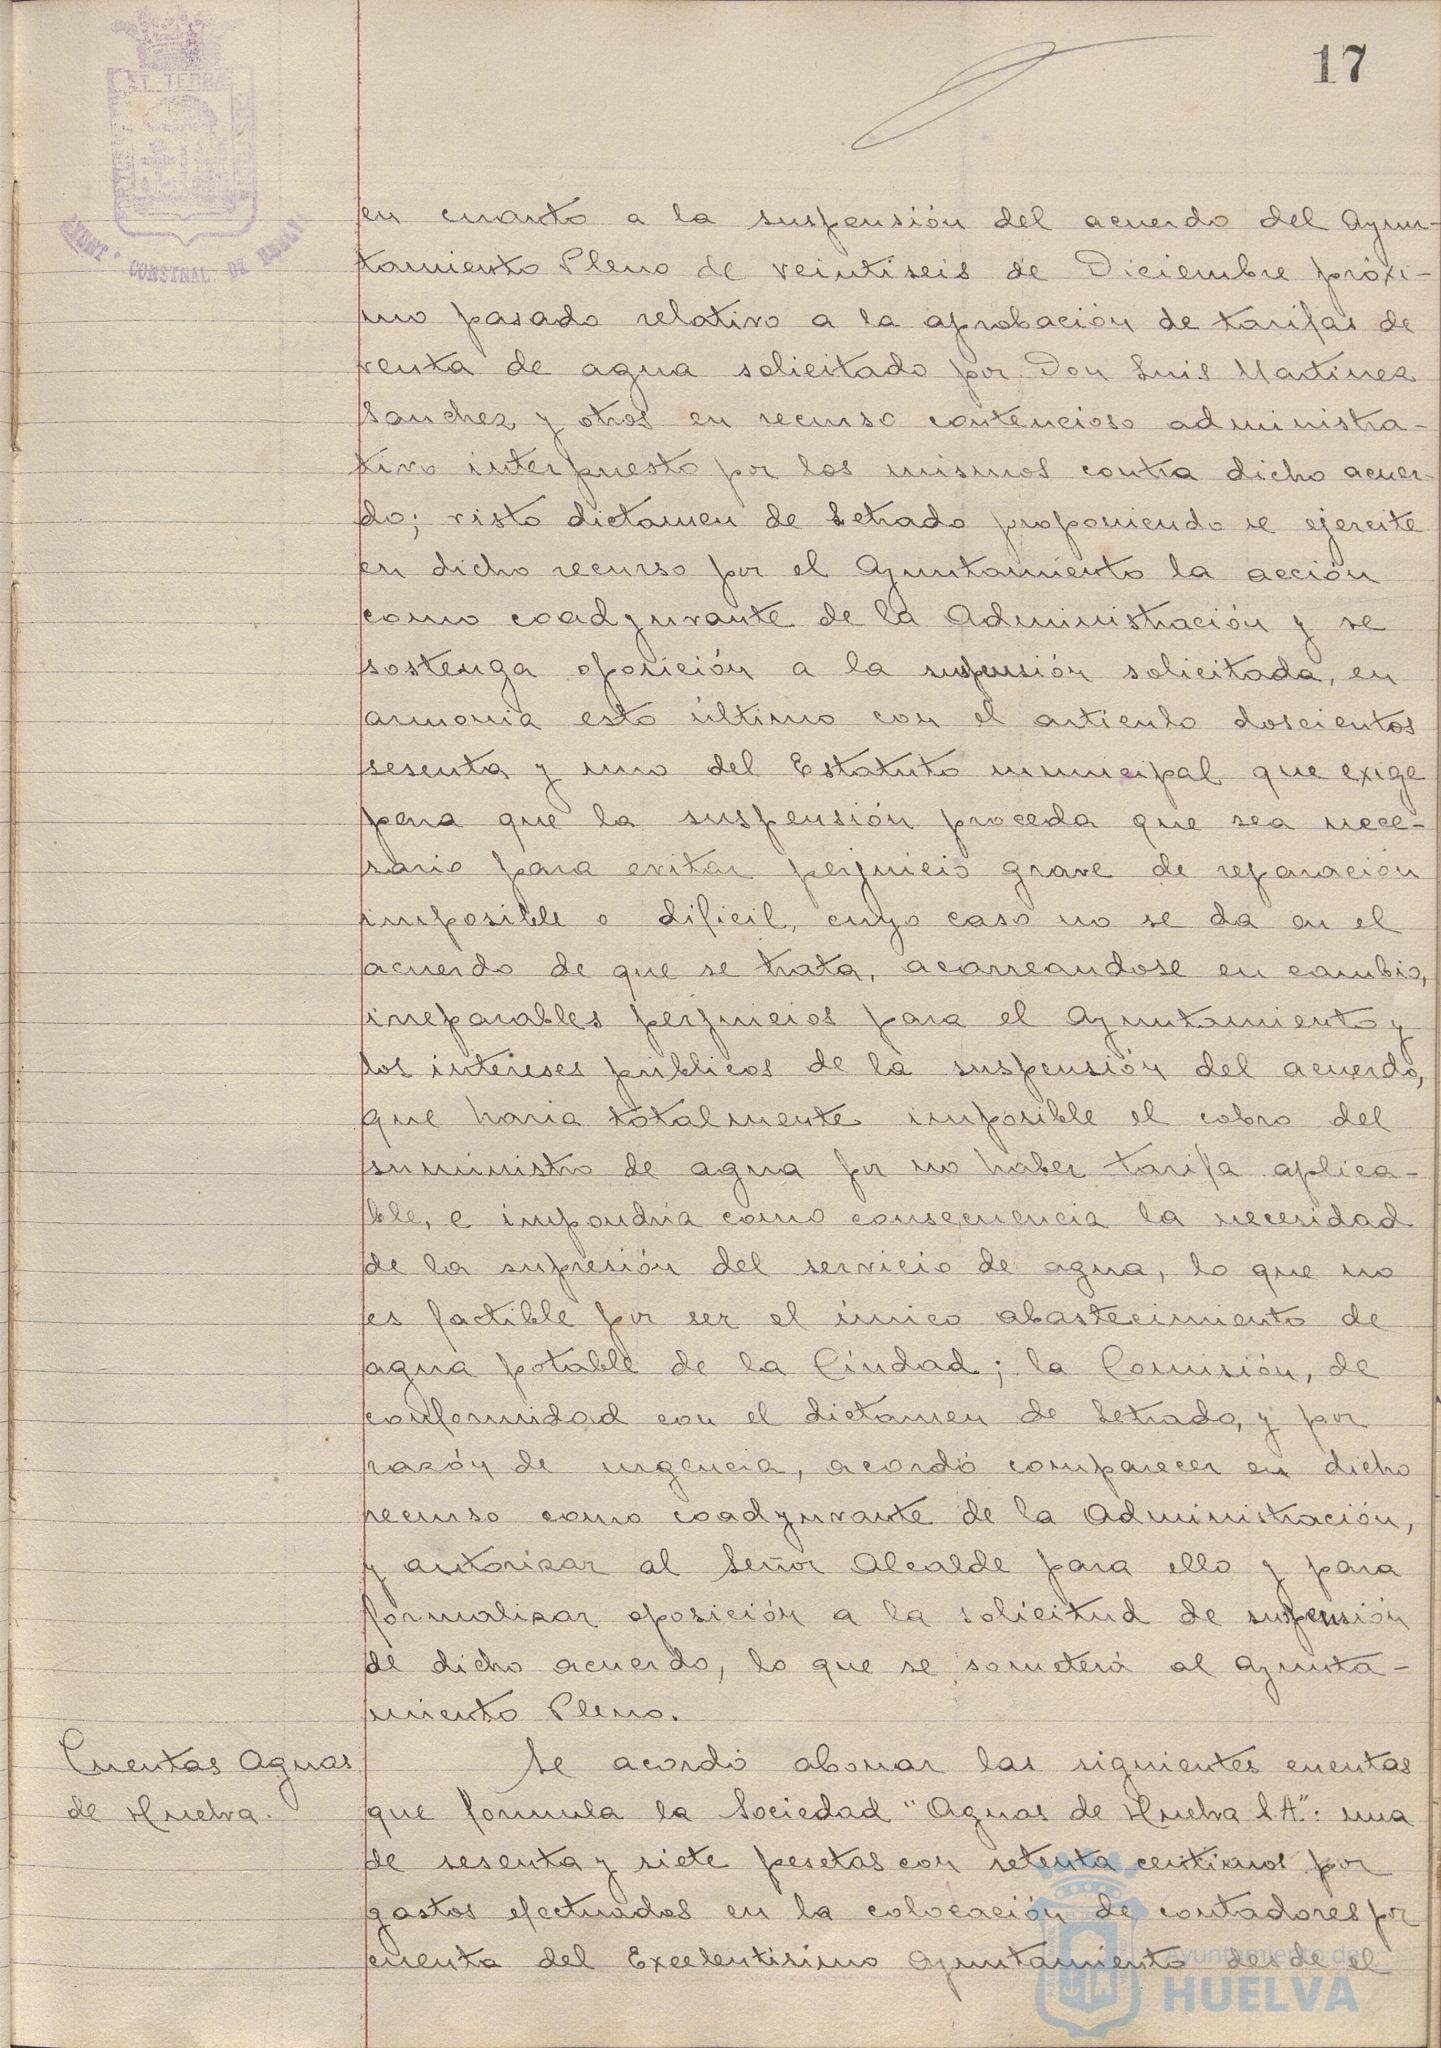 17
ET TERRÆ
AYUNT° CONSTNAL DE HUELVA
en cuanto a la suspensión del acuerdo del Ayun-
tamiento Pleno de veintiseis de Diciembre próxi-
mo pasado relativo a la aprobación de tarifas de
venta de agua solicitado por Don Luis Martinez
Sanchez y otros en recurso contencioso administra-
tivo interpuesto por los mismos contra dicho acuer-
do; visto dictamen de Letrado proponiendo se ejercite
en dicho recurso por el Ayuntamiento la acción
como coadyuvante de la Administración y se
sostenga oposición a la suspensión solicitada, en
armonia esto último con el articulo doscientos
sesenta y uno del Estatuto municipal que exige
para que la suspensión proceda que sea nece-
sario para evitar perjuicio grave de reparación
imposible o dificil, cuyo caso no se da en el
acuerdo de que se trata, acarreandose en cambio,
irreparables perjuicios para el Ayuntamiento y
los intereses públicos de la suspensión del acuerdo,
que haria totalmente imposible el cobro del
suministro de agua por no haber tarifa aplica-
ble, e impondria como consecuencia la necesidad
de la supresión del servicio de agua, lo que no
es factible por ser el único abastecimiento de
agua potable de la Ciudad; la Comisión, de
conformidad con el dictamen de Letrado, y por
razón de urgencia, acordó comparecer en dicho
recurso como coadyuvante de la Administración,
y autorizar al Señor Alcalde para ello y para
formalizar oposición a la solicitud de suspensión
de dicho acuerdo, lo que se someterá al Ayunta-
miento Pleno.
Cuentas Aguas
de Huelva.
Se acordó abonar las siguientes cuentas
que formula la Sociedad "Aguas de Huelva S.A.": una
de sesenta y siete pesetas con setenta centimos por
gastos efectuados en la colocación de contadores por
cuenta del Excelentisimo Ayuntamiento desde el
Ayuntamiento de
HUELVA